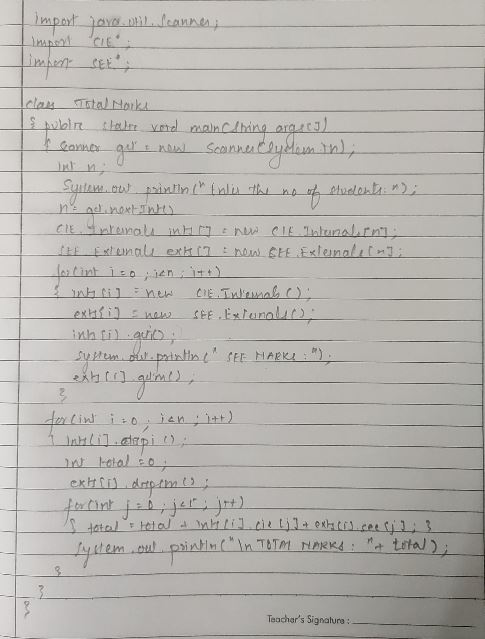 import java.util.Scanner;
import CIE*;
import SEE*;
class TotalMarks
{ public static void main(String args[])
{ Scanner get = new Scanner(System.In);
int n;
System.out.println("Enter the no of students: ");
n = get.nextInt()
CIE.Internals ints[] = new CIE.Internals[n];
SEE.Externals exts[] = new SEE.Externals[n];
for(int i=0; i<n; i++)
{ ints[i] = new CIE.Internals();
exts[i] = new SEE.Externals();
ints[i].get();
System.out.println(" SEE MARKS: ");
exts[i].getm();
}
for(int i=0; i<n; i++)
{ ints[i].dispi();
int total=0;
exts[i].dispm();
for(int j=0; j<5; j++)
{ total = total + ints[i].cie[j]+exts[i].see[j]; }
System.out.println("\n TOTAL MARKS: "+ total);
}
}
}
Teacher's Signature: